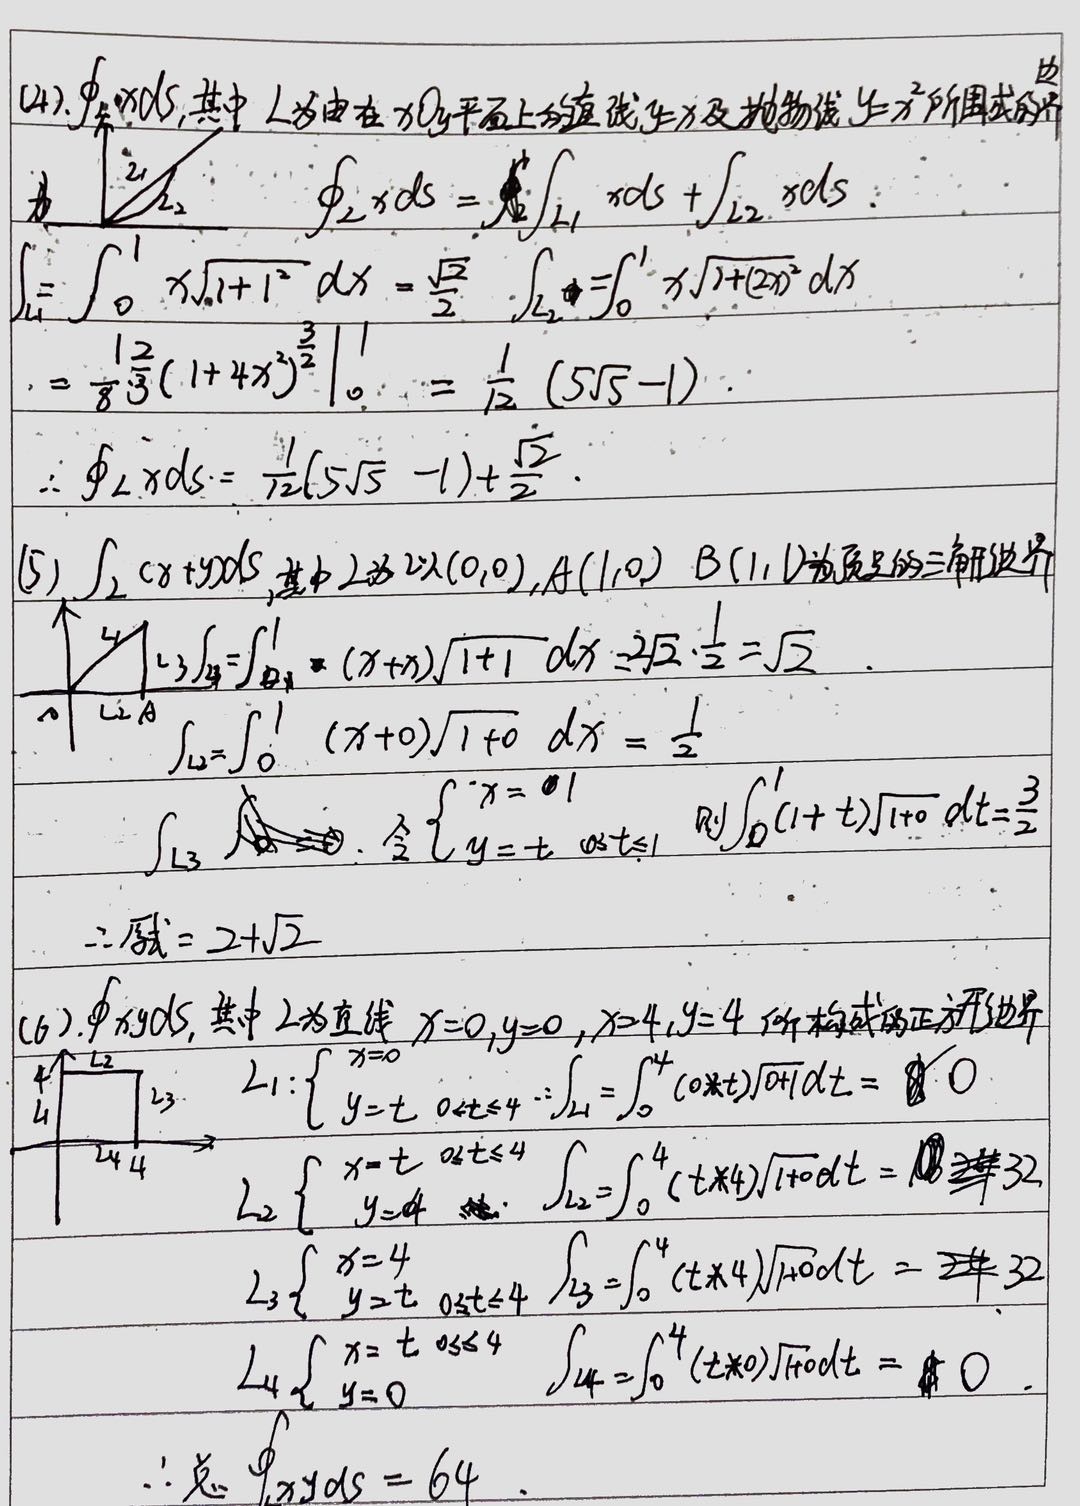 (4). ∮_L xds, 其中 L为由在 xOy平面上的直线 y=x 及抛物线 y=x² 所围成的边界
L₁ L₂ ∮_L xds = ∫_L₁ xds + ∫_L₂ xds.
∫_L₁ = ∫₀¹ x√(1+1²) dx = √2/2 ∫_L₂ = ∫₀¹ x√(1+(2x)²) dx
= 1/8·2/3 (1+4x²)^(3/2) |₀¹ = 1/12 (5√5-1).
∴ ∮_L xds = 1/12 (5√5 -1) + √2/2.
(5) ∫_L (x+y)ds, 其中 L为以(0,0), A(1,0) B(1,1)为顶点的三角形边界
L₁ L₃ ∫_L₁ = ∫₀¹ (x+x)√(1+1) dx = 2√2·1/2 = √2.
L₂ A ∫_L₂ = ∫₀¹ (x+0)√(1+0) dx = 1/2
∫_L₃ . 令 { x=1 y=t 0≤t≤1 则 ∫₀¹ (1+t)√(1+0) dt = 3/2
∴ 原式 = 2+√2
(6). ∮xyds, 其中 L为直线 x=0, y=0, x=4, y=4 所构成的正方形边界
4 L₂ L₁ L₃ L₄ 4 L₁: { x=0 y=t 0≤t≤4 ∴ ∫_L₁ = ∫₀⁴ (0*t)√(0+1) dt = 0
L₂ { x=t 0≤t≤4 y=4 ∫_L₂ = ∫₀⁴ (t*4)√(1+0) dt = 32
L₃ { x=4 y=t 0≤t≤4 ∫_L₃ = ∫₀⁴ (t*4)√(1+0) dt = 32
L₄ { x=t 0≤≤4 y=0 ∫_L₄ = ∫₀⁴ (t*0)√(1+0) dt = 0.
∴ 总 ∮_L xyds = 64.